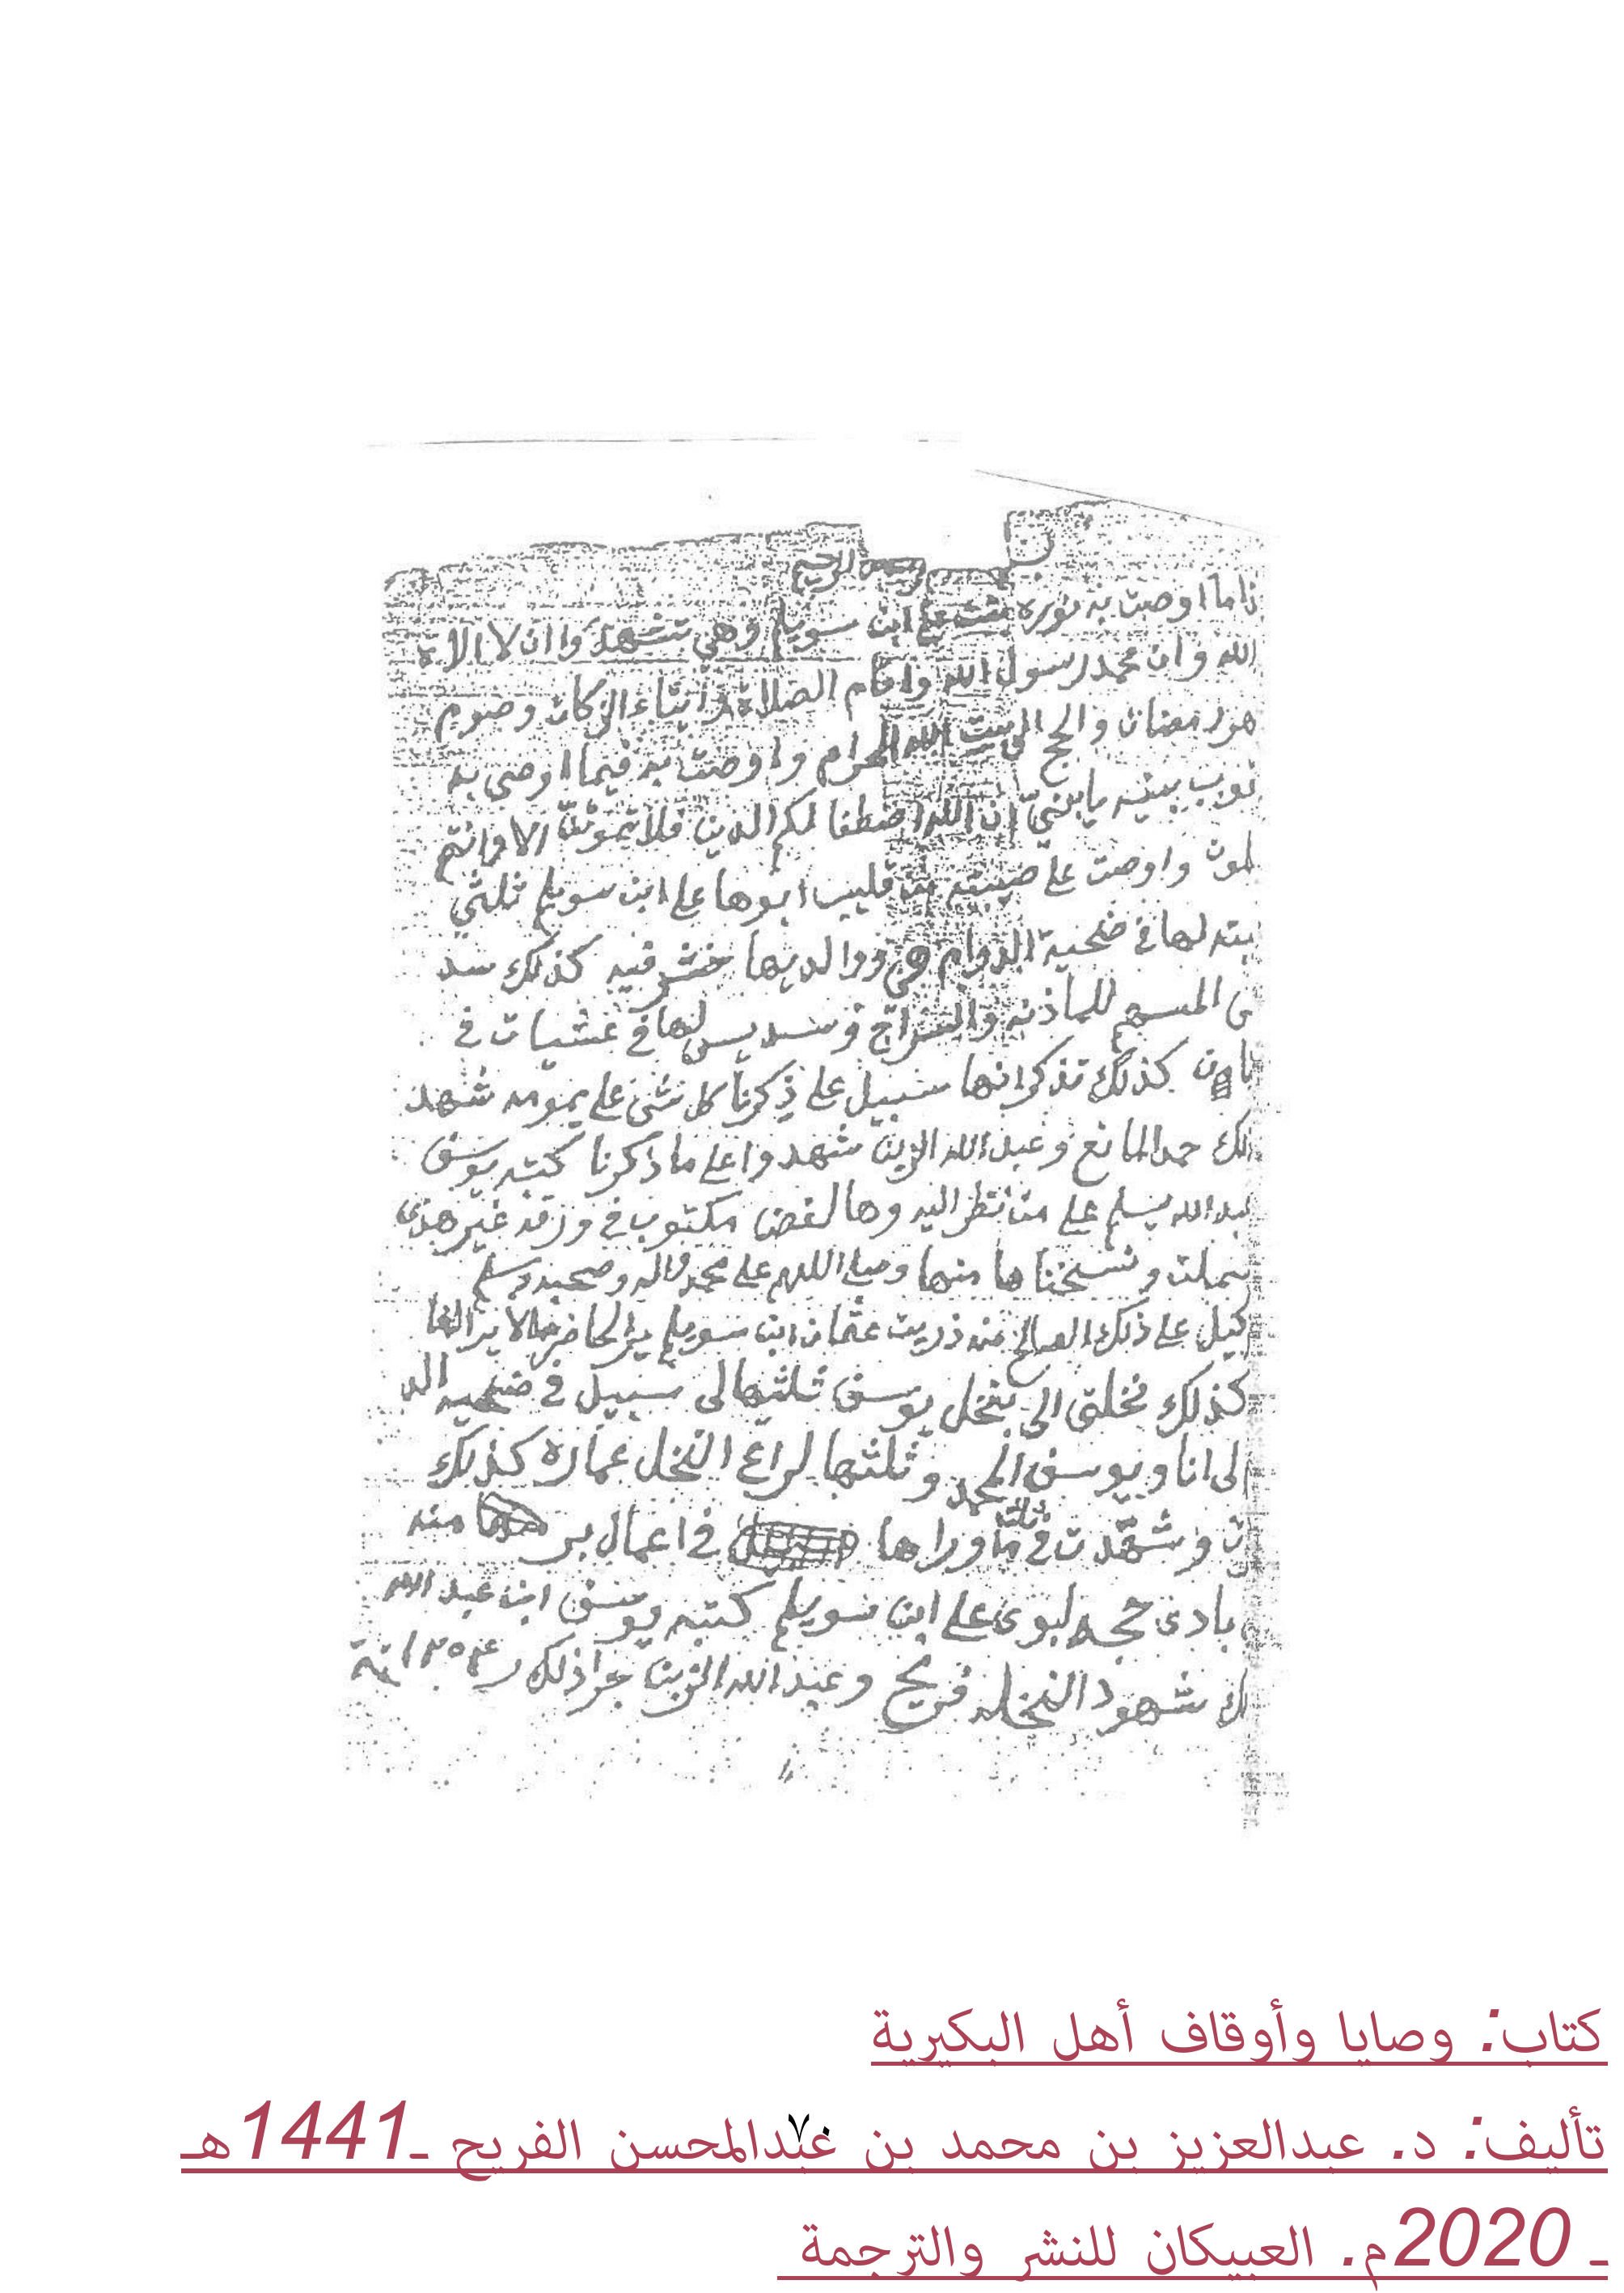 الرحيم
ذا ما اوصت به نوره بنت علي ابن سويلم وهي تشهد وا ان لا الاه
الله وان محمد رسول الله واقام الصلاة وايتاء الزكات وصوم
هر رمضان والحج الى بيت الله الحرام واوصت به فيما اوصى به
بنيه يا بني ان الله اصطفا لكم الدين فلا تموتن الا وانتم
واوصت على من قليب ابوها علي ابن سويلم ثلثي
لها في ضحية الدوام هي ووالديها فيه كذلك سد
للماذنه والسراج وسديس لها في عشيات في
كذلك تذكر انها سبيل على ذكرنا كل شي على يومه شهد
لك حمد المانع وعبد الله الزبن شهدوا على ما ذكرنا كتبه يوسف
عبد الله يسلم على من نظر اليه وها لفضا مكتوب في ورقه غير هذي
ونسخناها منها وصلى اللهم على محمد واله وصحبه وسلم
كيل على ذلك الصالح منه ذريت عثمان ابن سويلم
كذلك نخلتي الى بنخل يوسف ثلثها لى سبيل في ضحيه الد
لى انا ويوسف الحمد وثلثها لراع النخل عماره كذلك
وشهدت في ثلث ما وراها في اعمال بر منه
بادي حجه لبوي علي ابن سويلم كتبه يوسف ابن عبد الله
ك شهود النخله فريح وعبد الله الزبن جرا ذلك ١٢٥٤
٧٠
كتاب: وصايا وأوقاف أهل البكيرية
تأليف: د. عبدالعزيز بن محمد بن عبدالمحسن الفريح ـ1441هـ
ـ 2020م. العبيكان للنشر والترجمة